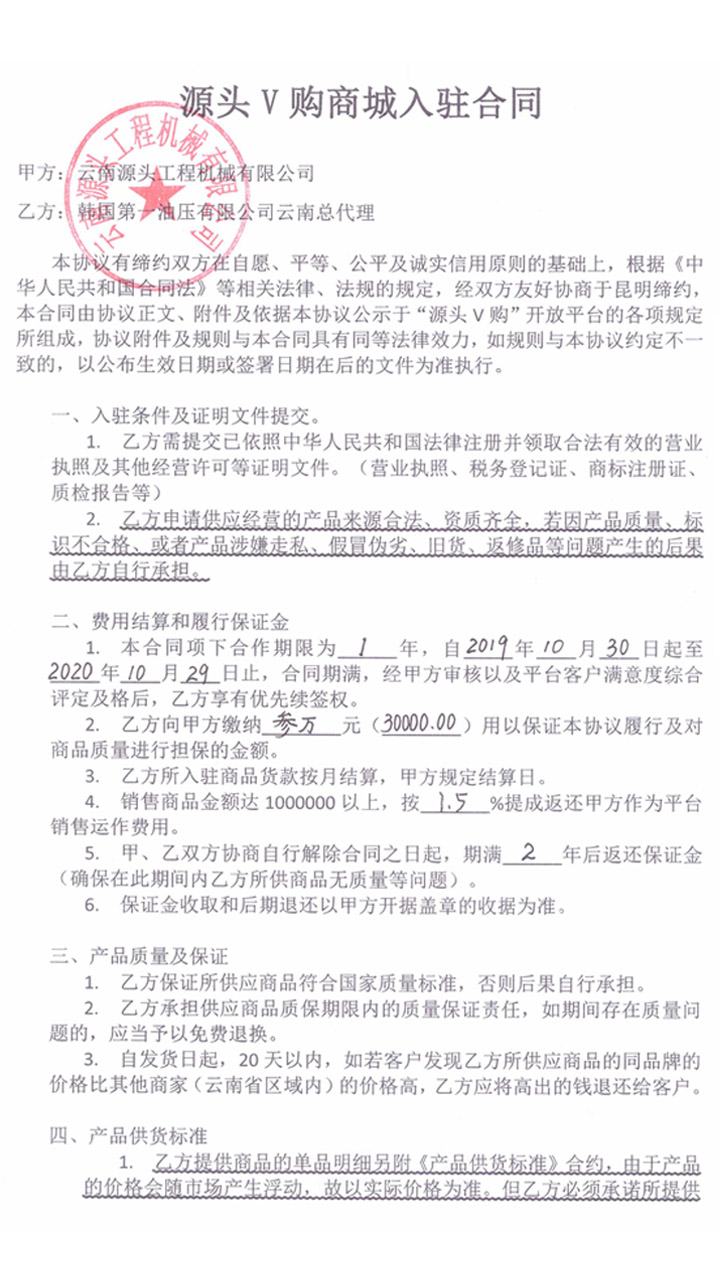 源头 V 购商城入驻合同
云南源头工程机械有限公司
甲方：云南源头工程机械有限公司
乙方：韩国第一油压有限公司云南总代理
本协议有缔约双方在自愿、平等、公平及诚实信用原则的基础上，根据《中
华人民共和国合同法》等相关法律、法规的规定，经双方友好协商于昆明缔约，
本合同由协议正文、附件及依据本协议公示于“源头 V 购”开放平台的各项规定
所组成，协议附件及规则与本合同具有同等法律效力，如规则与本协议约定不一
致的，以公布生效日期或签署日期在后的文件为准执行。
一、入驻条件及证明文件提交。
1. 乙方需提交已依照中华人民共和国法律注册并领取合法有效的营业
执照及其他经营许可等证明文件。（营业执照、税务登记证、商标注册证、
质检报告等）
2. 乙方申请供应经营的产品来源合法、资质齐全，若因产品质量、标
识不合格、或者产品涉嫌走私、假冒伪劣、旧货、返修品等问题产生的后果
由乙方自行承担。
二、费用结算和履行保证金
1. 本合同项下合作期限为 1 年，自 2019 年 10 月 30 日起至
2020 年 10 月 29 日止，合同期满，经甲方审核以及平台客户满意度综合
评定及格后，乙方享有优先续签权。
2. 乙方向甲方缴纳 叁万 元（30000.00）用以保证本协议履行及对
商品质量进行担保的金额。
3. 乙方所入驻商品货款按月结算，甲方规定结算日。
4. 销售商品金额达 1000000 以上，按 1.5 %提成返还甲方作为平台
销售运作费用。
5. 甲、乙双方协商自行解除合同之日起，期满 2 年后返还保证金
（确保在此期间内乙方所供商品无质量等问题）。
6. 保证金收取和后期退还以甲方开据盖章的收据为准。
三、产品质量及保证
1. 乙方保证所供应商品符合国家质量标准，否则后果自行承担。
2. 乙方承担供应商品质保期限内的质量保证责任，如期间存在质量问
题的，应当予以免费退换。
3. 自发货日起，20 天以内，如若客户发现乙方所供应商品的同品牌的
价格比其他商家（云南省区域内）的价格高，乙方应将高出的钱退还给客户。
四、产品供货标准
1. 乙方提供商品的单品明细另附《产品供货标准》合约，由于产品
的价格会随市场产生浮动，故以实际价格为准。但乙方必须承诺所提供